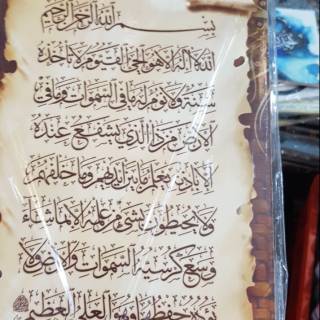 بسم الله الرحمن الرحيم
الله لا إله إلا هو الحي القيوم لا تأخذه
سنة ولا نوم له ما في السموات وما في
الارض من ذا الذي يشفع عنده
الا باذنه يعلم ما بين أيديهم وما خلفهم
ولا يحيطون بشئ من علمه إلا بما شاء
وسع كرسيه السموات والارض ولا
يئوده حفظهما وهو العلي العظيم